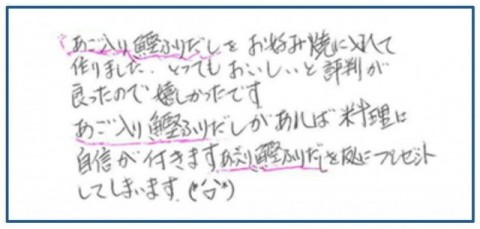 あご入り鰹ふりだしをお好み焼に入れて
作りました、とってもおいしいと評判が
良ったので嬉しかったです
あご入り鰹ふりだしがあれば料理に
自信が付きますあご入り鰹ふりだしを にプレゼント
してしまいます。